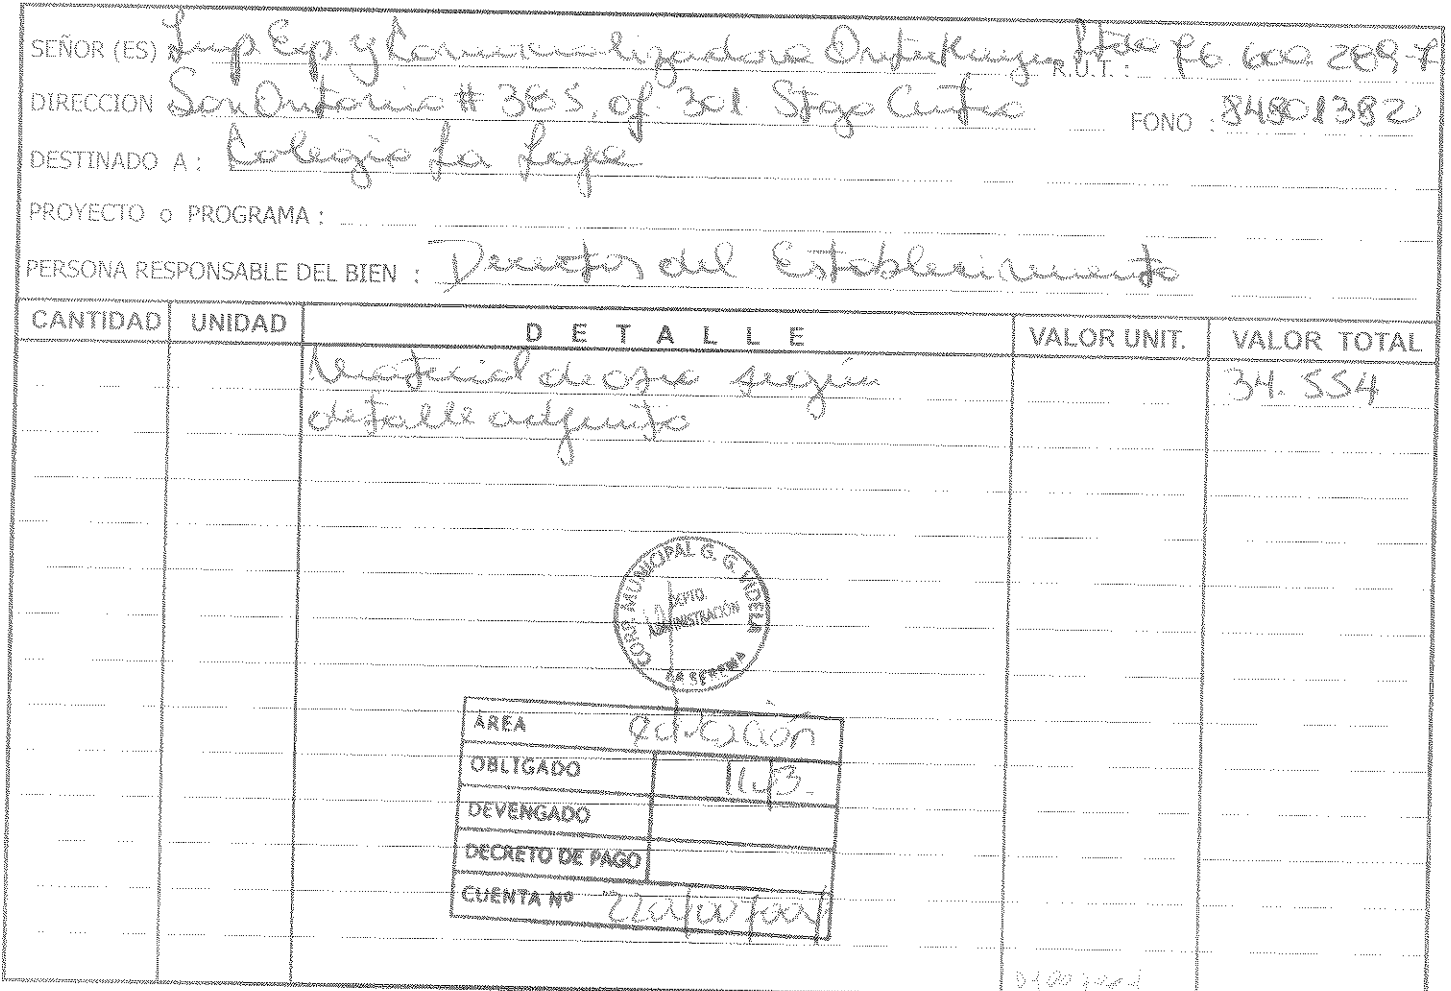 SEÑOR (ES) Imp Exp. y Comercializadora Ltda R.U.T.: 76.600.289-7
DIRECCION San Antonio # 385, of. 301 Stgo Centro FONO : 84801382
DESTINADO A : Colegio La
PROYECTO o PROGRAMA :
PERSONA RESPONSABLE DEL BIEN : Director del Establecimiento
CANTIDAD UNIDAD DETALLE VALOR UNIT. VALOR TOTAL
Material de aseo según 34.554
detalle adjunto
CORP. MUNICIPAL G. G. VIDELA
DEPTO.
ADMINISTRACIÓN
LA SERENA
ÁREA educación
OBLIGADO
DEVENGADO
DECRETO DE PAGO
CUENTA Nº